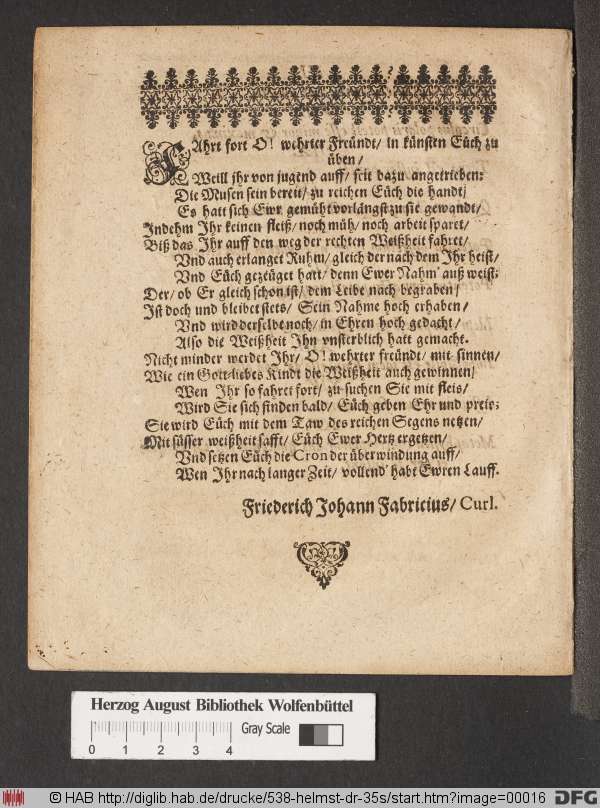 FAhrt fort O! wehrter Freündt/ in künsten Eüch zu
üben/
Weill jhr von jugend auff/ seit dazu angetrieben:
Die Musen sein bereit/ zu reichen Eüch die handt/
Es hatt sich Ewr gemüht vorlängst zu sie gewandt/
Indehm Ihr keinen fleiß/ noch müh/ noch arbeit sparet/
Biß das Ihr auff den weg der rechten Weißheit fahret/
Vnd auch erlanget Ruhm/ gleich der nach dem Ihr heist/
Vnd Eüch gezeüget hatt/ denn Ewer Nahm' auß weist:
Der/ ob Er gleich schon ist/ dem Leibe nach begraben/
Ist doch und bleibet stets/ Sein Nahme hoch erhaben/
Vnd wird derselbe noch/ in Ehren hoch gedacht/
Also die Weißheit Ihn vnsterblich hatt gemacht.
Nicht minder werdet Ihr/ O! wehrter freündt/ mit sinnen/
Wie ein Gott-liebes Kindt die Weißheit auch gewinnen/
Wen Ihr so fahret fort/ zu suchen Sie mit fleis/
Wird Sie sich finden bald/ Eüch geben Ehr und preis:
Sie wird Eüch mit dem Taw des reichen Segens netzen/
Mit süsser weißheit safft/ Eüch Ewer Hertz ergetzen/
Vnd setzen Eüch die Cron der überwindung auff/
Wen Ihr nach langer Zeit/ vollend' habt Ewren Lauff.
Friederich Johann Fabricius/ Curl.
Herzog August Bibliothek Wolfenbüttel
Gray Scale
0 1 2 3 4
© HAB http://diglib.hab.de/drucke/538-helmst-dr-35s/start.htm?image=00016
DFG